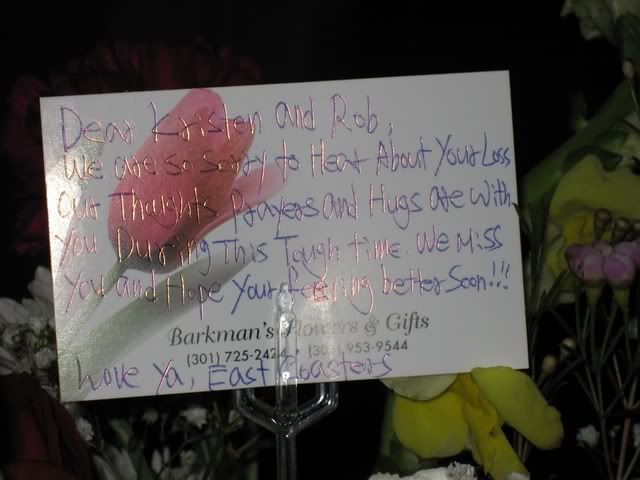 Dear Kristen and Rob,
We are so sorry to Hear About Your Loss
our Thoughts Prayers and Hugs are with
You During This Tough time. We Miss
You and Hope Your feeling better Soon!!!
Barkman's Flowers & Gifts
(301) 725-242 (301) 953-9544
Love Ya, East Coasters